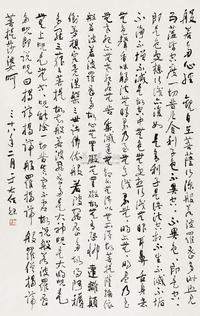 般若多心經 觀自在菩薩行深般若波羅密多時照見
五蘊皆空度一切苦厄舍利子色不異空空不異色色即是空空
即是色受想行識亦復如是舍利子是諸法空相不生不滅不垢
不淨不增不減是故空中無色無受想行識無眼耳鼻舌身意
無色聲香味觸法無眼界乃至無意識界無無明亦無無明盡乃至
無老死亦無老死盡無苦集滅道無智亦無得以無所得故菩提薩埵依
般若波羅密多故心無罣礙無罣礙故無有恐怖遠離顛
倒夢想究竟涅槃三世諸佛依般若波羅密多故得阿耨
多羅三藐三菩提故知般若波羅密多是大神咒是大明咒是
無上咒是無等等咒能除一切苦真實不虛故說般若波羅密
多咒即說咒曰揭諦揭諦般羅揭諦般羅僧揭諦
菩提薩婆訶
三十八年一月 于右任